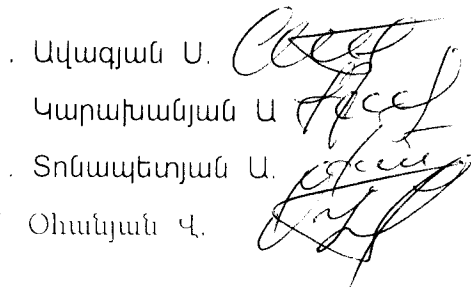 . Ավագյան Ս.
Կարախանյան Ա
. Տոնապետյան Ա.
Օհանյան Վ.